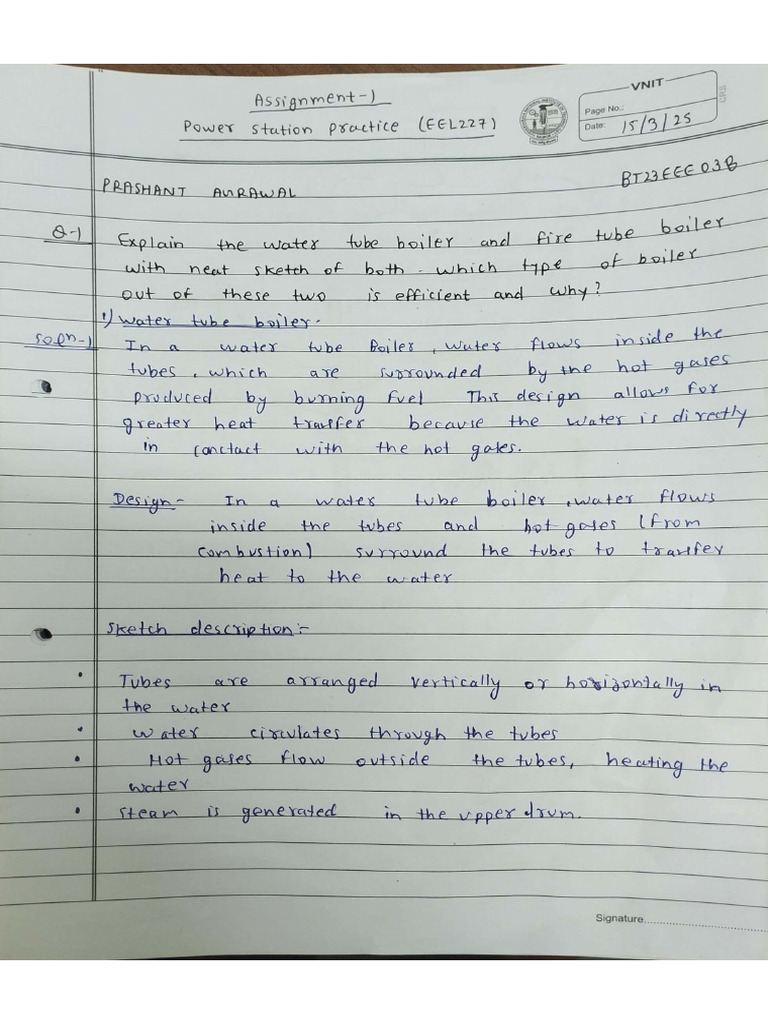 VNIT
Page No.:
Date: 15/3/25
CRS
Assignment-1
Power Station Practice (EEL227)
PRASHANT AURAWAL
BT23EEE038
Q-1 Explain the water tube boiler and fire tube boiler
with neat sketch of both. which type of boiler
out of these two is efficient and why?
1) Water tube boiler.
Soln-1 In a water tube Boiler, water flows inside the
tubes, which are surrounded by the hot gases
produced by burning fuel This design allows for
greater heat transfer because the water is directly
in conctact with the hot gases.
Design- In a water tube boiler, water flows
inside the tubes and hot gases (from
combustion) surround the tubes to transfer
heat to the water
Sketch description:-
• Tubes are arranged vertically or horizontally in
the water
• Water circulates through the tubes
• Hot gases flow outside the tubes, heating the
water
• Steam is generated in the upper drum.
Signature